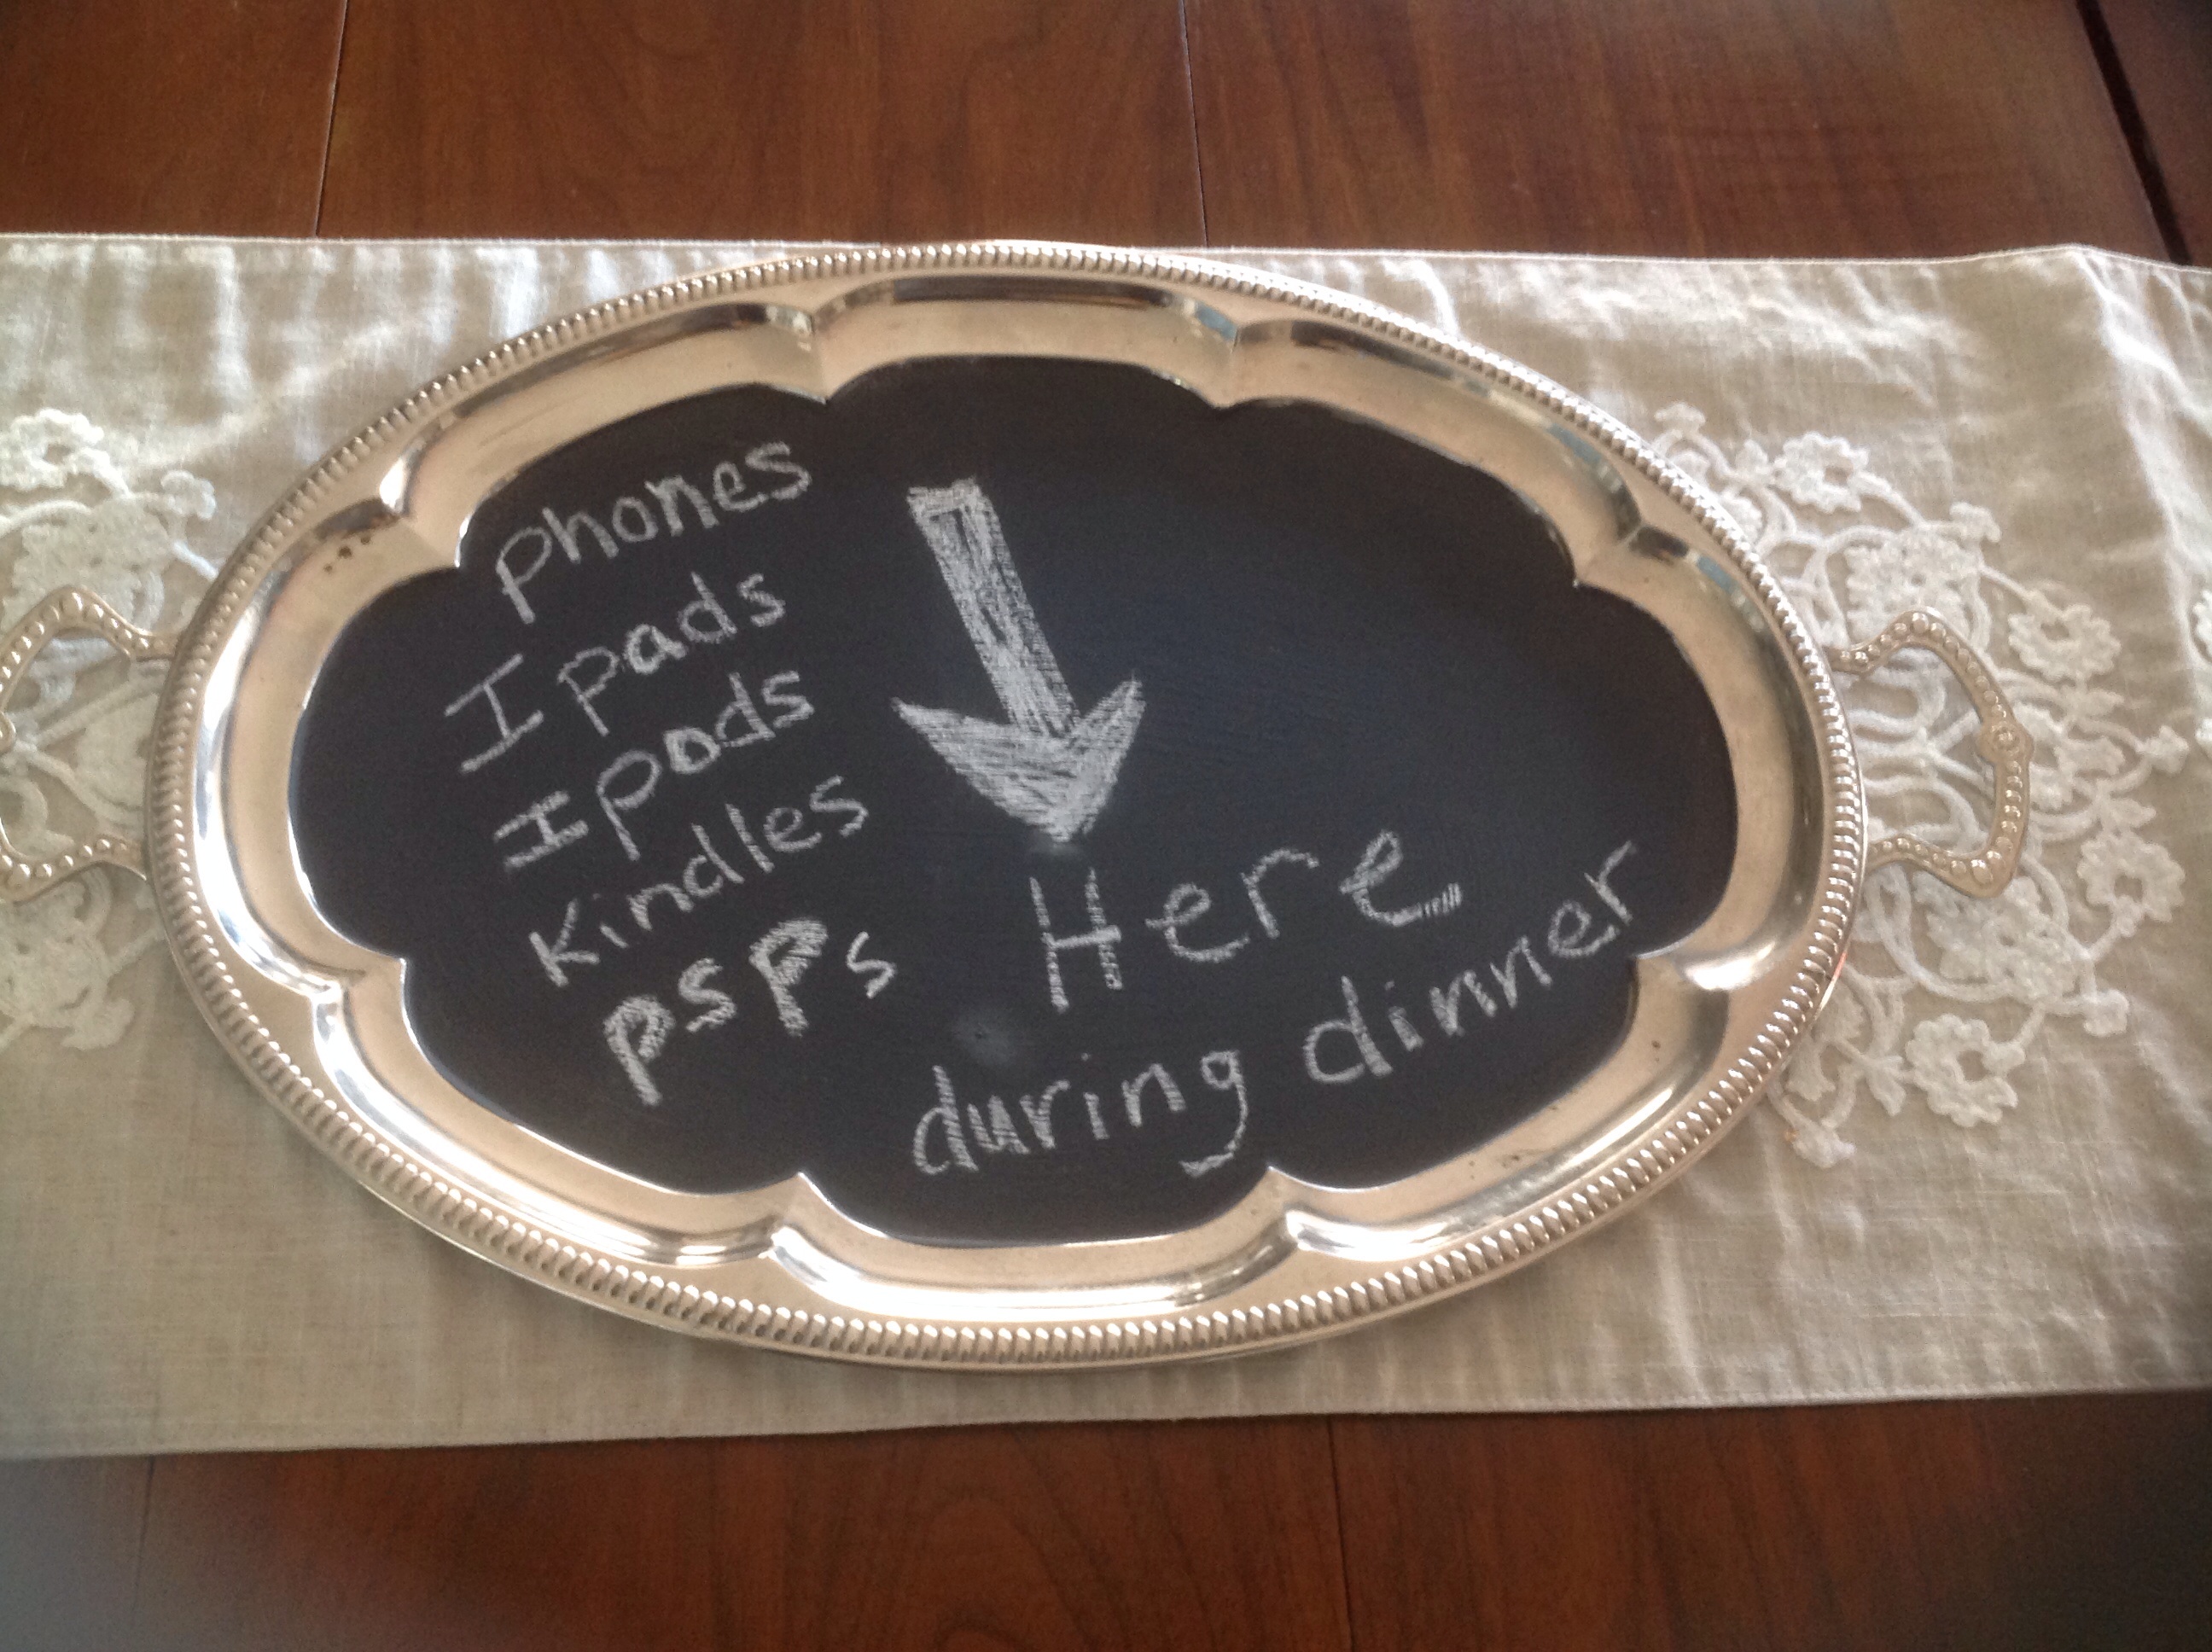 phones
Ipads
Ipods
Kindles
PSPs
Here
during dinner